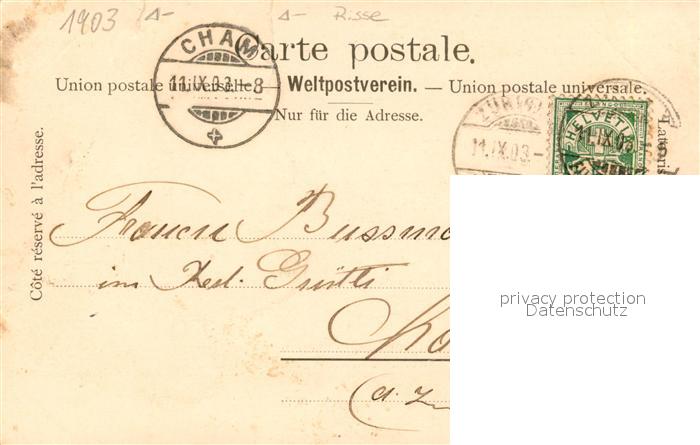 1903 Risse
CHAM
11.IX.03.-8
Carte postale.
Union postale universelle. — Weltpostverein. — Union postale universale.
Nur für die Adresse.
ZÜRICH
11.IX.03.-
HELVETIA
11.IX.03
Côté réservé à l'adresse.
Frauen Bussm
im Rest. Grütli
privacy protection
Datenschutz